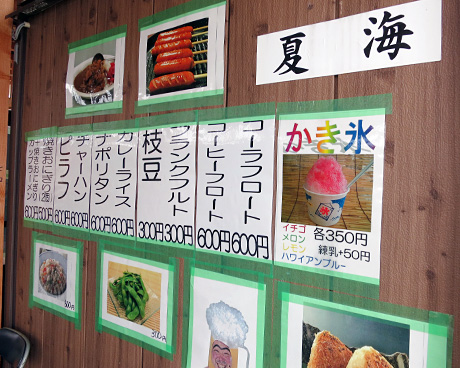 夏 海
かき氷
イチゴ
メロン
レモン
ハワイアンブルー
各350円
練乳+50円
コーラフロート 600円
コーヒーフロート 600円
フランクフルト 300円
枝豆 300円
カレーライス 600円
ナポリタン 600円
チャーハン 600円
ピラフ 600円
焼きおにぎり(2個) 500円
カップラーメン
+焼きおにぎり
500円
300円